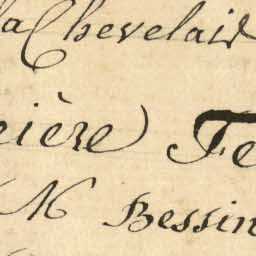 la Chevelair
ière Fe
M Bessin